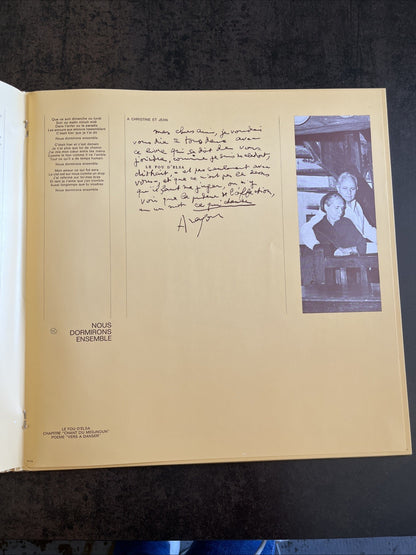 Que ce soit dimanche ou lundi
Soir ou matin minuit midi
Dans l'enfer ou le paradis
Les amours aux amours ressemblent
C'était hier que je t'ai dit
Nous dormirons ensemble
C'était hier et c'est demain
Je n'ai plus que toi de chemin
J'ai mis mon cœur entre tes mains
Avec le tien comme il va l'amble
Tout ce qu'il a de temps humain
Nous dormirons ensemble
Mon amour ce qui fut sera
Le ciel est sur nous comme un drap
J'ai refermé sur toi mes bras
Et tant je t'aime que j'en tremble
Aussi longtemps que tu voudras
Nous dormirons ensemble
A CHRISTINE ET JEAN
mes chers amis, je voudrais
vous dire à tous deux avec
ce livre qui se doit de vous
joindre, comme je suis
LE FOU D'ELSA
et pas seulement avec
vous et que ce n'est pas le
qu'il faut
voir que la pudeur de l'affection,
en un mot ce qui chante
Aragon
NOUS
DORMIRONS
ENSEMBLE
LE FOU D'ELSA
CHAPITRE "CHANT DU MEDJNOUN"
POEME "VERS A DANSER"